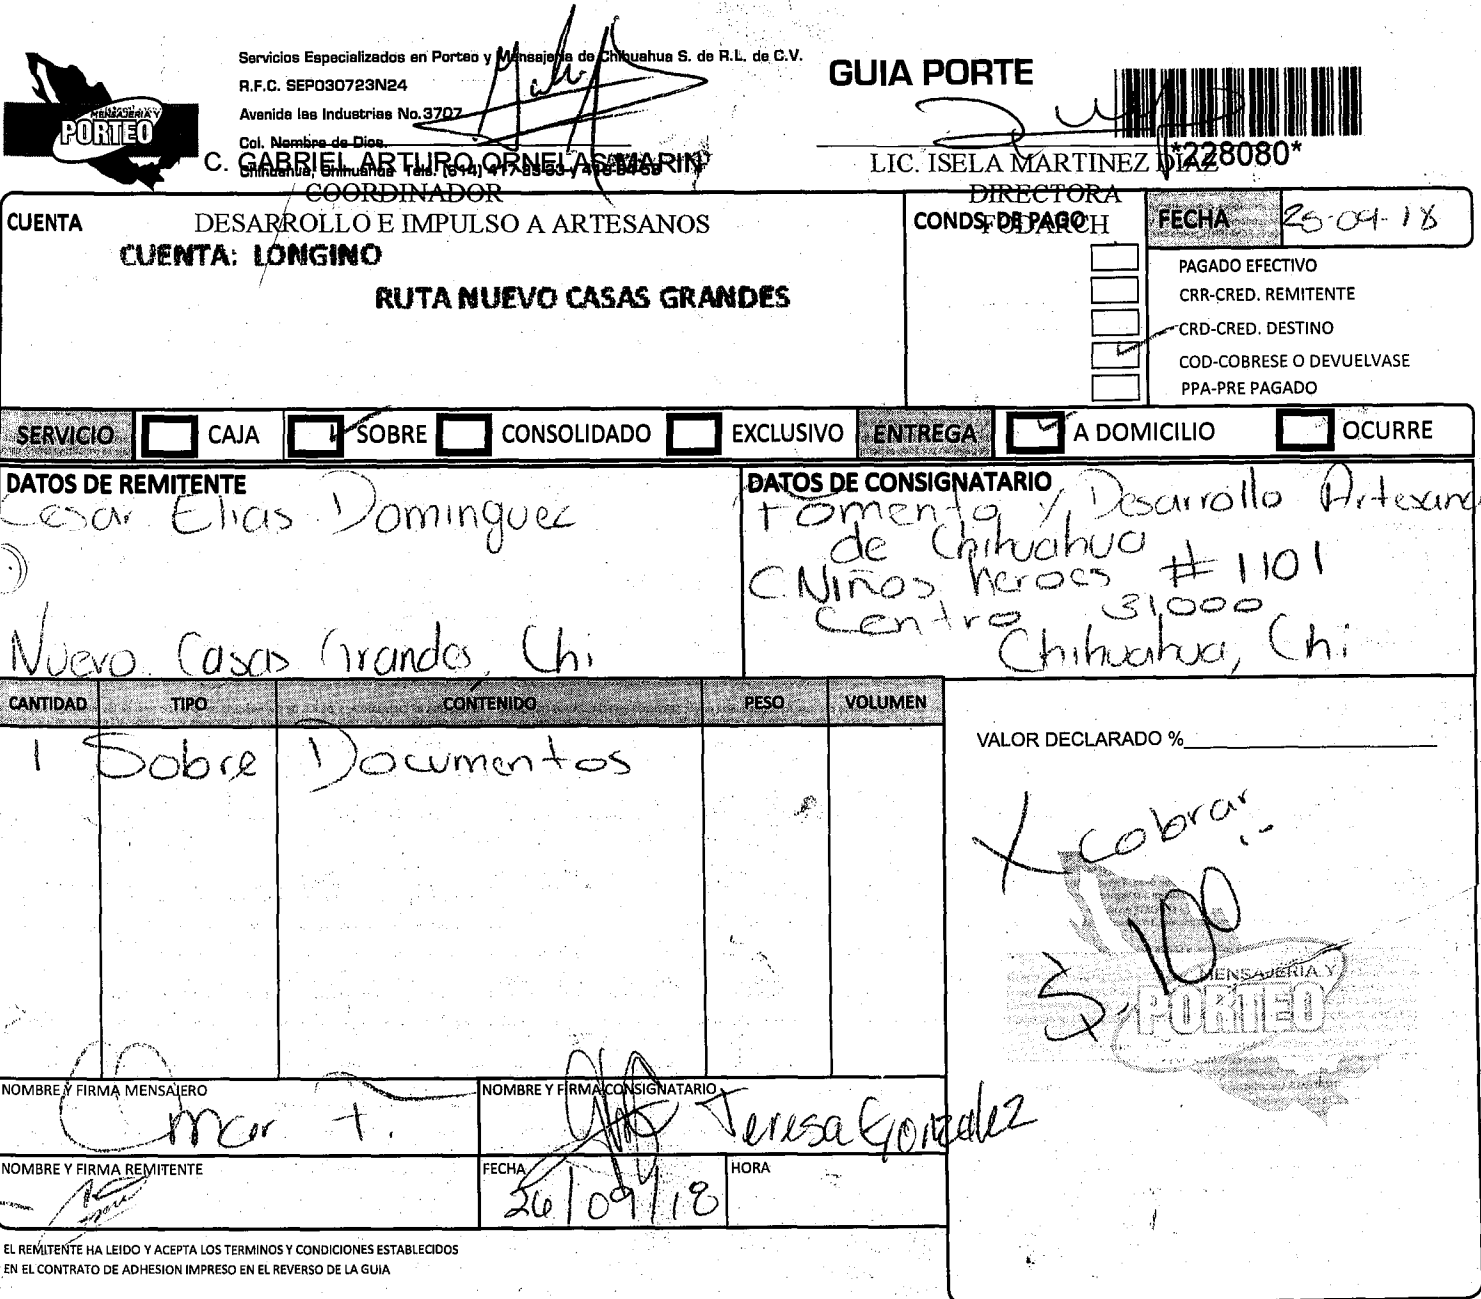 Servicios Especializados en Porteo y Mensajeria de Chihuahua S. de R.L. de C.V.
R.F.C. SEP030723N24
Avenida las Industrias No.3707
Col. Nombre de Dios.
Chihuahua, Chihuahua Tels. (614)
MENSAJERIA Y
PORTEO
GUIA PORTE
*228080*
C. GABRIEL ARTURO ORNELAS MARIN
COORDINADOR
DESARROLLO E IMPULSO A ARTESANOS
LIC. ISELA MARTINEZ DIAZ
DIRECTORA
FODARCH
CUENTA
CUENTA: LONGINO
RUTA NUEVO CASAS GRANDES
CONDS. DE PAGO
FECHA 25-09-18
PAGADO EFECTIVO
CRR-CRED. REMITENTE
CRD-CRED. DESTINO
COD-COBRESE O DEVUELVASE
PPA-PRE PAGADO
SERVICIO CAJA SOBRE CONSOLIDADO EXCLUSIVO ENTREGA A DOMICILIO OCURRE
DATOS DE REMITENTE
Cesar Elias Dominguez
Nuevo Casas Grandes, Chi
DATOS DE CONSIGNATARIO
Fomento y Desarrollo Artesanal
de Chihuahua
C Niños heroes #1101
Centro 31,000
Chihuahua, Chi
CANTIDAD TIPO CONTENIDO PESO VOLUMEN
1 Sobre Documentos
VALOR DECLARADO %
X cobrar
$.100.-
MENSAJERIA Y
PORTEO
NOMBRE Y FIRMA MENSAJERO
Omar T.
NOMBRE Y FIRMA CONSIGNATARIO
Teresa Gonzalez
NOMBRE Y FIRMA REMITENTE
FECHA
26/09/18
HORA
EL REMITENTE HA LEIDO Y ACEPTA LOS TERMINOS Y CONDICIONES ESTABLECIDOS
EN EL CONTRATO DE ADHESION IMPRESO EN EL REVERSO DE LA GUIA